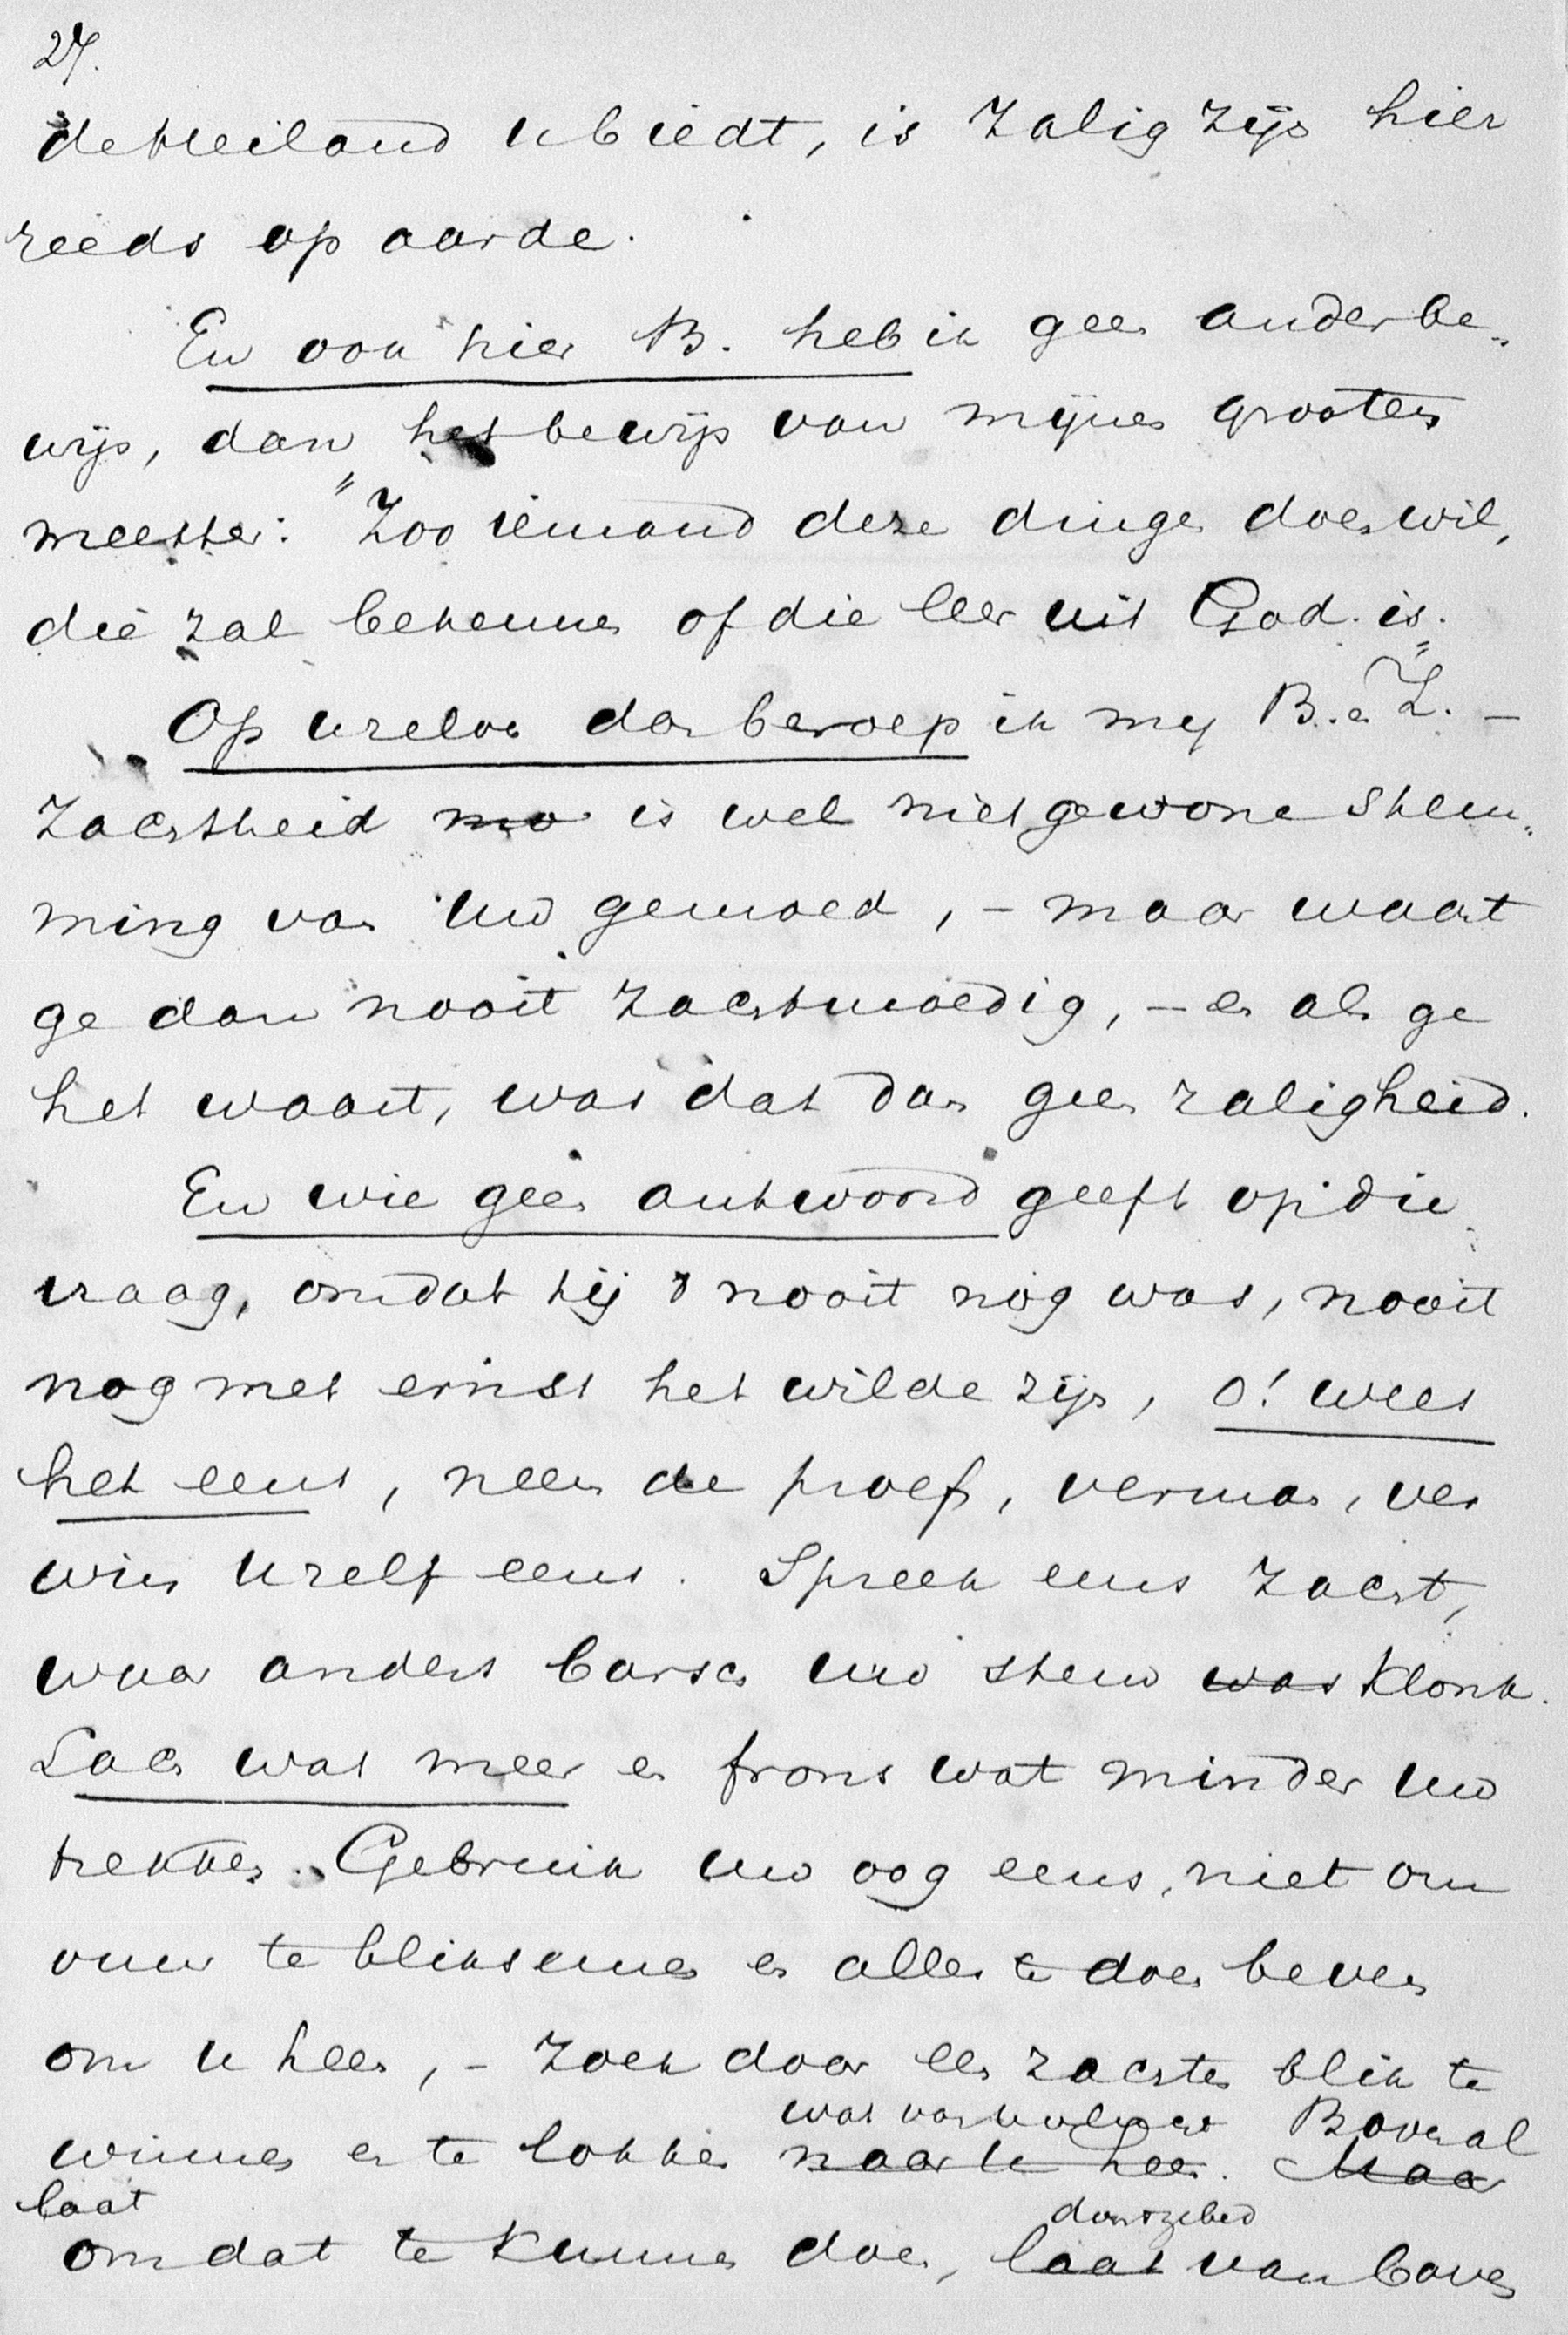 27.
de Heiland u biedt, is zalig zijn hier
reeds op aarde.
En ook hier B. heb ik geen ander be-
wijs, dan het bewijs van mijnen grooten
meester: "Zoo iemand deze dingen doen wil,
die zal bekennen of die leer uit God is."
Op uzelven dan beroep ik mij B. en Z. -
Zachtheid mo is wel niet gewone stem-
ming van uw gemoed, - maar waart
ge dan nooit zachtmoedig, - en als ge
het waart, was dat dan geen zaligheid.
En wie geen antwoord geeft op die
vraag, omdat hij 't nooit nog was, nooit
nog met ernst het wilde zijn, o! wees
het eens, neem de proef, verman, ver
win uzelf eens. Spreek eens zacht,
waar anders barsch uw stem was klonk.
Lach wat meer en frons wat minder uw
trekken. Gebruik uw oog eens, niet om
vuur te bliksemen en alles te doen beven
om u heen, - zoek door een zachten blik te
wat Bovenal
winnen en te lokken naar u heen. Maar
laat gebed
om dat te kunnen doen, laat van boven